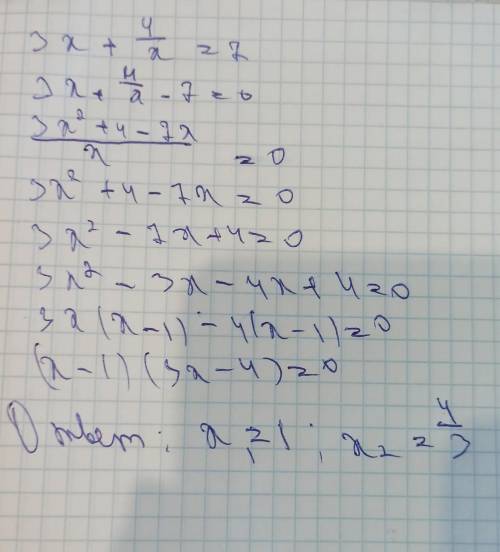 3x + 4/x = 7
3x + 4/x - 7 = 0
(3x² + 4 - 7x)/x = 0
3x² + 4 - 7x = 0
3x² - 7x + 4 = 0
3x² - 3x - 4x + 4 = 0
3x(x-1) - 4(x-1) = 0
(x-1)(3x-4) = 0
Ответ: x₁ = 1; x₂ = 4/3